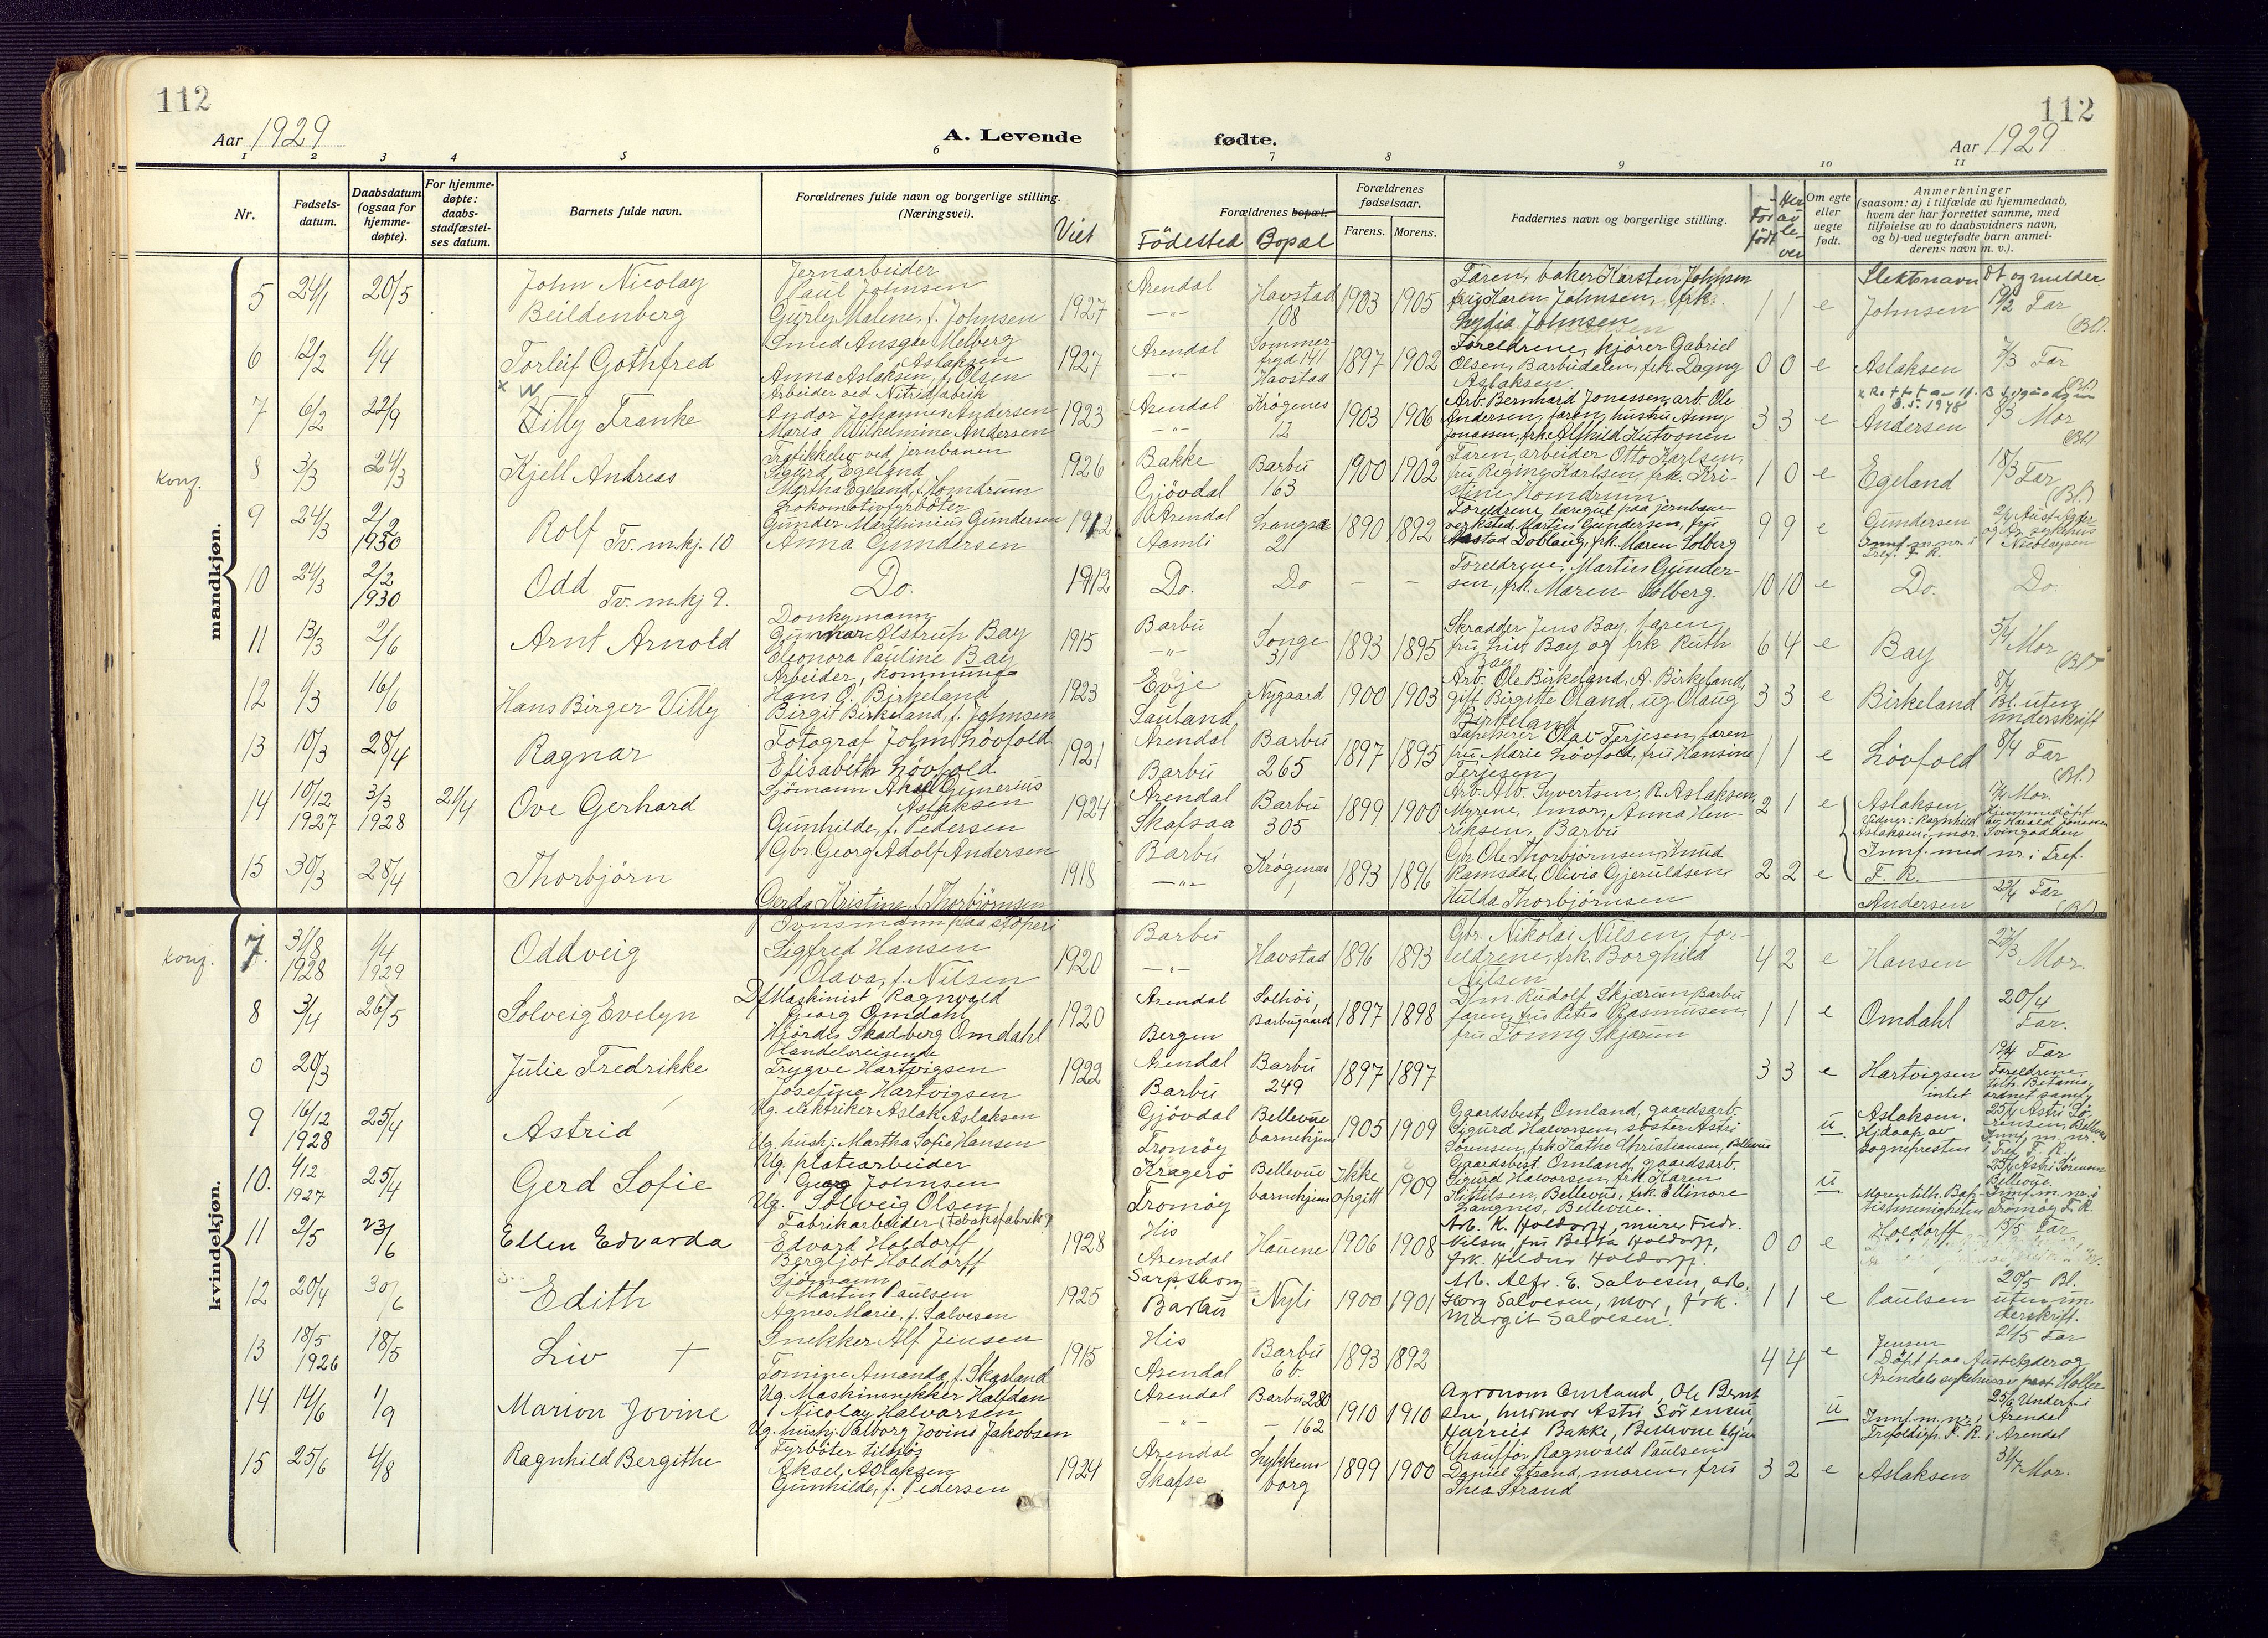 112
112
Aar 1929
A. Levende
fødte.
Aar 1929
1 2 3 4 5 6 7 8 9 10 11
Nr.
Fødsels-
datum.
Daabsdatum
(ogsaa for
hjemme-
døpte).
For hjemme-
døpte:
daabs-
stadfæstel-
ses datum.
Barnets fulde navn.
Forældrenes fulde navn og borgerlige stilling.
(Næringsvei).
Viet
Forældrenes bopæl.
Födested Bopæl
Forældrenes
fødselsaar.
Farens. Morens.
Faddernes navn og borgerlige stilling.
Før
født
Her
av
le-
ver
Om egte
eller
uegte
født.
Anmerkninger
(saasom: a) i tilfælde av hjemmedaab,
hvem der har forrettet samme, med
tilføielse av to daabsvidners navn,
og b) ved uegtefødte barn anmel-
derens navn m. v.).
mandkjøn.
5 24/1 20/5
John Nicolay
Beildenberg
Jernarbeider
Paul Johnsen
Gurly Malene, f. Johnsen
1927
Arendal
-"-
Havstad
108
1903 1905
Faren, baker Karsten Johnsen
fru Karen Johnsen, frk.
Lydia Johnsen
1 1 e
Slektsnavn
Johnsen
dt og melder
19/2 Far
(Bl.)
6 12/2 1/4
Torleif Gothfred
Smed Ansgar Melberg
Aslaksen
Anna Aslaksen, f. Olsen
1927
Arendal
-"-
Sommer-
fryd 141
Havstad
1897 1902
Foreldrene, kjører Gabriel
Olsen, Barbudalen, frk. Dagny
Aslaksen
0 0 e
Aslaksen
7/3 Far
(Bl.)
7 6/2 22/9
x W
Tilly Franke
Arbeider ved Nitridfabrik
Andor Johannes Andersen
Maria Wilhelmine Andersen
1923
Arendal
-"-
Krøgenes
12
1903 1906
Arb. Bernhard Jonassen, arb. Ole
Andersen, faren, hustru Anny
Jonassen, frk. Alfhild Kutvonen
3 3 e
3.5.1948
Andersen
8/3 Mor
(Bl.)
Konf.
8 3/3 24/3
Kjell Andreas
Trafikkelev ved jernbanen
Sigurd Egeland
Martha Egeland, f. Homdrum
1926
Bakke
Gjövdal
Barbu
163
1900 1902
Faren, arbeider Otto Karlsen,
fru Regine Karlsen, frk. Kri-
stine Homdrum
1 0 e
Egeland
18/3 Far
(Bl.)
9 24/3 2/2
1930
Rolf Tv. m. kj. 10
Lokomotivfyrböter
Gunder Marthinius Gundersen
Anna Gundersen
1912
Arendal
Aamli
Langsæ
21
1890 1892
Foreldrene, læregut paa jernbane
verksted, Martin Gundersen, fru
Aastad Doblaug, frk. Maren Solberg
9 9 e
Gundersen
Innf. m. nr. i
Tref. F. R.
2/4 Aust-Agder
og Ar. sykehus
Nicolaysen
10 24/3 2/2
1930
Odd Tv. m. kj 9.
Do.
1912
Do. Do – –
Foreldrene, Martin Gunder-
sen, frk. Maren Solberg.
10 10 e
Do. Do.
11 13/3 2/6
Arnt Arnold
Donkymann
Gunnar Alstrup Bay
Eleonora Pauline Bay
1915
Barbu
-"-
Songe
31
1893 1895
Skrædder Jens Bay, faren,
fru Lina Bay og frk Ruth
Bay
6 4 e
Bay
5/4 Mor
(Bl.)
12 1/3 16/6
Hans Birger Villy
Arbeider, kommune
Hans O. Birkeland
Birgit Birkeland, f. Johnsen
1923
Evje
Sauland
Nygaard
1900 1903
Arb. Ole Birkeland, A. Birkeland,
gift Birgitte Oland, ug. Olaug
Birkeland
3 3 e
Birkeland
8/4
Bl. uten
underskrift
13 10/3 28/4
Ragnar
Fotograf John Lövfold
Elisabeth Lövfold
1921
Arendal
Barbu
Barbu
265
1897 1895
Tapetserer Olav Terjesen, faren
fru Marie Lövfold, fru Hansine
Terjesen
1 1 e
Lövfold
8/4 Far
(Bl.)
14 10/12
1927
3/3
1928
21/4
Ove Gerhard
Sjömann Aksel Gunerius
Aslaksen
Gunhilde, f. Pedersen
1924
Arendal
Skafsaa
Barbu
305
1899 1900
Arb. Alb. Syvertsen, R. Aslaksen,
Myrene, mor, Anna Hen-
riksen, Barbu
2 1 e
Aslaksen
17/4 Mor.
Hjemmedøpt
av Harald Jonassen
Vidner: Ragnhild
Aslaksen, mor. Svingodden
Innf. med nr. i Tref.
F. R.
15 30/3 28/4
Thorbjörn
Gbr. Georg Adolf Andersen
Gerda Kristine, f. Thorbjörnsen
1918
Barbu
-"-
Krögenes
1
1893 1896
Gbr Ole Thorbjörnsen, Knud
Ramsdal, Olivia Gjeruldsen,
Hulda Thorbjörnsen
2 2 e
Andersen
22/4 Far
(Bl.)
kvindekjøn.
Konf.
7. 31/8
1928
1/4
1929
Oddveig
Formsmann paa støperi
Sigfred Hansen
Olava, f. Nilsen
1920
Barbu
-"-
Havstad
1896 1893
Gbr. Nikolai Nilsen, for-
eldrene, frk. Borghild
Nilsen
4 2 e
Hansen
27/3 Mor.
8 3/4 26/5
Solveig Evelyn
D/Maskinist Ragnvald
Georg Omdahl
Hjördis Skadberg Omdahl
1920
Arendal
Bergen
Solhöi,
Barbugaard
1897 1898
D/m. Rudolf Skjærum Barbu
faren, fru Petra Rasmussen,
fru Tonny Skjærum
1 1 e
Omdahl
20/4
Far.
0 20/3
Julie Fredrikke
Handelsreisende
Trygve Hartvigsen
Josefine Hartvigsen
1922
Arendal
Barbu
Barbu
249
1897 1897
3 3 e
Hartvigsen
19/4 Far
Foreldrene
tilh. Betania,
intet ordnet samf.
9 16/12
1928
25/4
Astrid
Ug. elektriker Aslak Aslaksen
Ug. hush.: Martha Sofie Hansen
Gjövdal
Tromøy
Bellevue
barnehjem
1905 1909
Gaardsbest. Omland, gaardsarb.
Sigurd Halvorsen, söster Astri
Sörensen, frk. Kathe Christiansen, Bellevue
u.
Aslaksen.
Hjdaap av
Sognepresten
25/4 Astri Sö-
rensen, Bellevue
Innf. m. nr.
i Tref. F. R.
10. 4/12
1927
25/4
Gerd Sofie
Ug. platearbeider
Georg Johnsen
Ug. Solveig Olsen
Kragerö
Tromöy
Bellevue
barnehjem
Ikke
opgitt
1909
Gaardsbest. Omland, gaardsarb.
Sigurd Halvorsen, frk. Karen
Kittilsen, Bellevue, frk. Ellinore
Langnes, Bellevue.
u
25/4 Astri Sörensen
Bellevue.
Moren tilh. Bap-
tistmenigheten
Innf. m. nr. i
Tromöy F. R.
11 2/5 23/6
Ellen Edvarda
Fabrikarbeider (tobaksfabrik)
Edvard Holdorff
Bergljot Holdorff
1928
His
Arendal
Hauene
1906 1908
Arb. K. Holdorff, murer Fredr.
Nilsen, fru Berta Holdorff,
frk. Hildur Holdorff.
0 0 e
Holdorff
15/5 Far
12 20/4 30/6
Edith
Sjömann
Martin Paulsen
Agnes Marie, f. Salvesen
1925
Sarpsborg
Barbu
Nyli
1900 1901
Arb. Alfr. E. Salvesen, arb.
Georg Salvesen, mor, frk.
Margit Salvesen.
1 1 e
Paulsen
20/5 Bl.
uten un-
derskrift.
13 18/5
1926
18/5
Liv †
Snekker Alf Jensen
Tomine Amanda, f. Skaaland
1915
His
Arendal
Barbu
6 b.
1893 1892
4 4 e
Jensen
21/5 Far
Döpt paa Aust-Agder og
Arendals sykehus av past Møller
14 14/6 1/9
Marion Jovine
Ug. Maskinsnekker Halfdan
Nicolay Halvorsen
Ug. hush. Valborg Jovine Jakobsen
Arendal
-"-
Barbu 280
– 162
1910 1910
Agronom Omland, Ole Bernt
sen, husmor Astri Sörensen,
Harriet Bakke, Bellevue hjem
u
25/6 Underf. i
Arendal
Innf. m. nr. i
Trefoldigh. F. R. i Arendal
15 25/6 4/8
Ragnhild Bergithe
Fyrböter tilsjös
Aksel Aslaksen
Gunhilde, f. Pedersen
1924
Arendal
Skafse
Lykkens
borg
1899 1900
Chauffør Ragnvald Paulsen
Daniel Strand, moren, fru
Thea Strand
3 2 e
Aslaksen
31/7 Mor.